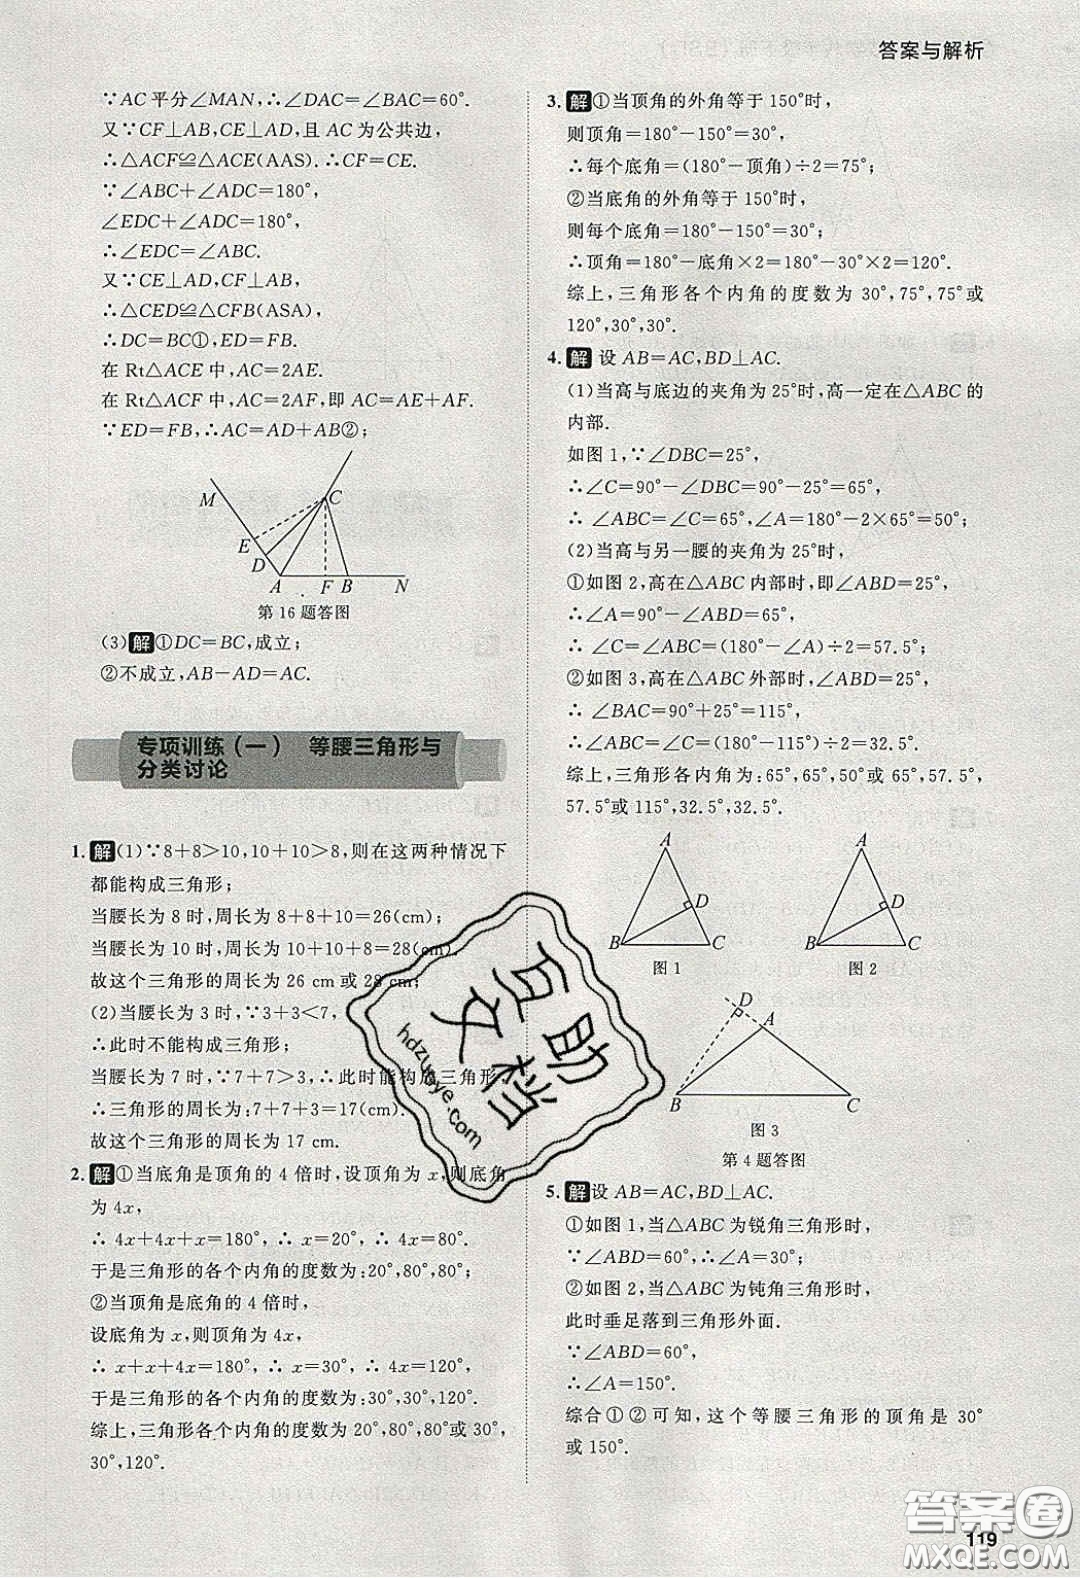 答案与解析
∵AC平分∠MAN,∴∠DAC=∠BAC=60°.
又∵CF⊥AB,CE⊥AD,且AC为公共边,
∴△ACF≌△ACE(AAS).∴CF=CE.
∵∠ABC+∠ADC=180°,
∠EDC+∠ADC=180°,
∴∠EDC=∠ABC.
又∵CE⊥AD,CF⊥AB,
∴△CED≌△CFB(ASA),
∴DC=BC①,ED=FB.
在Rt△ACE中,AC=2AE.
在Rt△ACF中,AC=2AF,即AC=AE+AF.
∵ED=FB,∴AC=AD+AB②;
M
C
E
D
A F B N
第16题答图
(3)解①DC=BC,成立;
②不成立,AB-AD=AC.
专项训练(一) 等腰三角形与
分类讨论
1.解(1)∵8+8>10,10+10>8,则在这两种情况下
都能构成三角形;
当腰长为8时,周长为8+8+10=26(cm);
当腰长为10时,周长为10+10+8=28(cm).
故这个三角形的周长为26 cm或28 cm.
(2)当腰长为3时,∵3+3<7,
∴此时不能构成三角形;
当腰长为7时,∵7+7>3,∴此时能构成三角形,
∴三角形的周长为:7+7+3=17(cm).
故这个三角形的周长为17 cm.
2.解①当底角是顶角的4倍时,设顶角为x,则底角
为4x,
∴ 4x+4x+x=180°,∴ x=20°,∴ 4x=80°.
于是三角形的各个内角的度数为:20°,80°,80°;
②当顶角是底角的4倍时,
设底角为x,则顶角为4x,
∴ x+x+4x=180°,∴ x=30°,∴ 4x=120°,
于是三角形的各个内角的度数为:30°,30°,120°.
综上,三角形各个内角的度数为20°,80°,80°或30°,
30°,120°.
3.解①当顶角的外角等于150°时,
则顶角=180°-150°=30°,
∴每个底角=(180°-顶角)÷2=75°;
②当底角的外角等于150°时,
则每个底角=180°-150°=30°;
∴顶角=180°-底角×2=180°-30°×2=120°.
综上,三角形各个内角的度数为30°,75°,75°或
120°,30°,30°.
4.解 设AB=AC,BD⊥AC.
(1)当高与底边的夹角为25°时,高一定在△ABC的
内部.
如图1,∵∠DBC=25°,
∴∠C=90°-∠DBC=90°-25°=65°,
∴∠ABC=∠C=65°,∠A=180°-2×65°=50°;
(2)当高与另一腰的夹角为25°时,
①如图2,高在△ABC内部时,即∠ABD=25°,
∴∠A=90°-∠ABD=65°,
∴∠C=∠ABC=(180°-∠A)÷2=57.5°;
②如图3,高在△ABC外部时,∠ABD=25°,
∴∠BAC=90°+25°=115°,
∴∠ABC=∠C=(180°-115°)÷2=32.5°.
综上,三角形各内角为:65°,65°,50°或65°,57.5°,
57.5°或115°,32.5°,32.5°.
A A
D D
B C B C
图1 图2
D
A
B C
图3
第4题答图
5.解设AB=AC,BD⊥AC.
①如图1,当△ABC为锐角三角形时,
∵∠ABD=60°,∴∠A=30°;
②如图2,当△ABC为钝角三角形时,
此时垂足落到三角形外面.
∵∠ABD=60°,
∴∠A=150°.
综合①②可知,这个等腰三角形的顶角是30°
或150°.
119
互助
文档
hdzuoye.com
答案圈
MXQE.COM